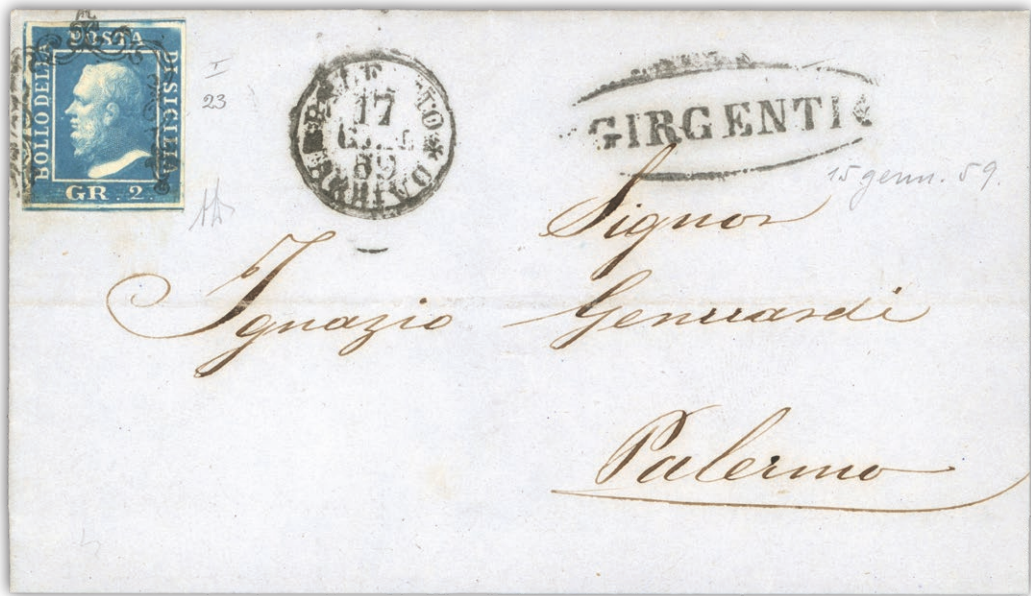 POSTA
BOLLO DELLA
DI SICILIA
GR. 2.
I
23
17
59
GIRGENTI
15 genn. 59.
Signor
Ignazio Genuardi
Palermo